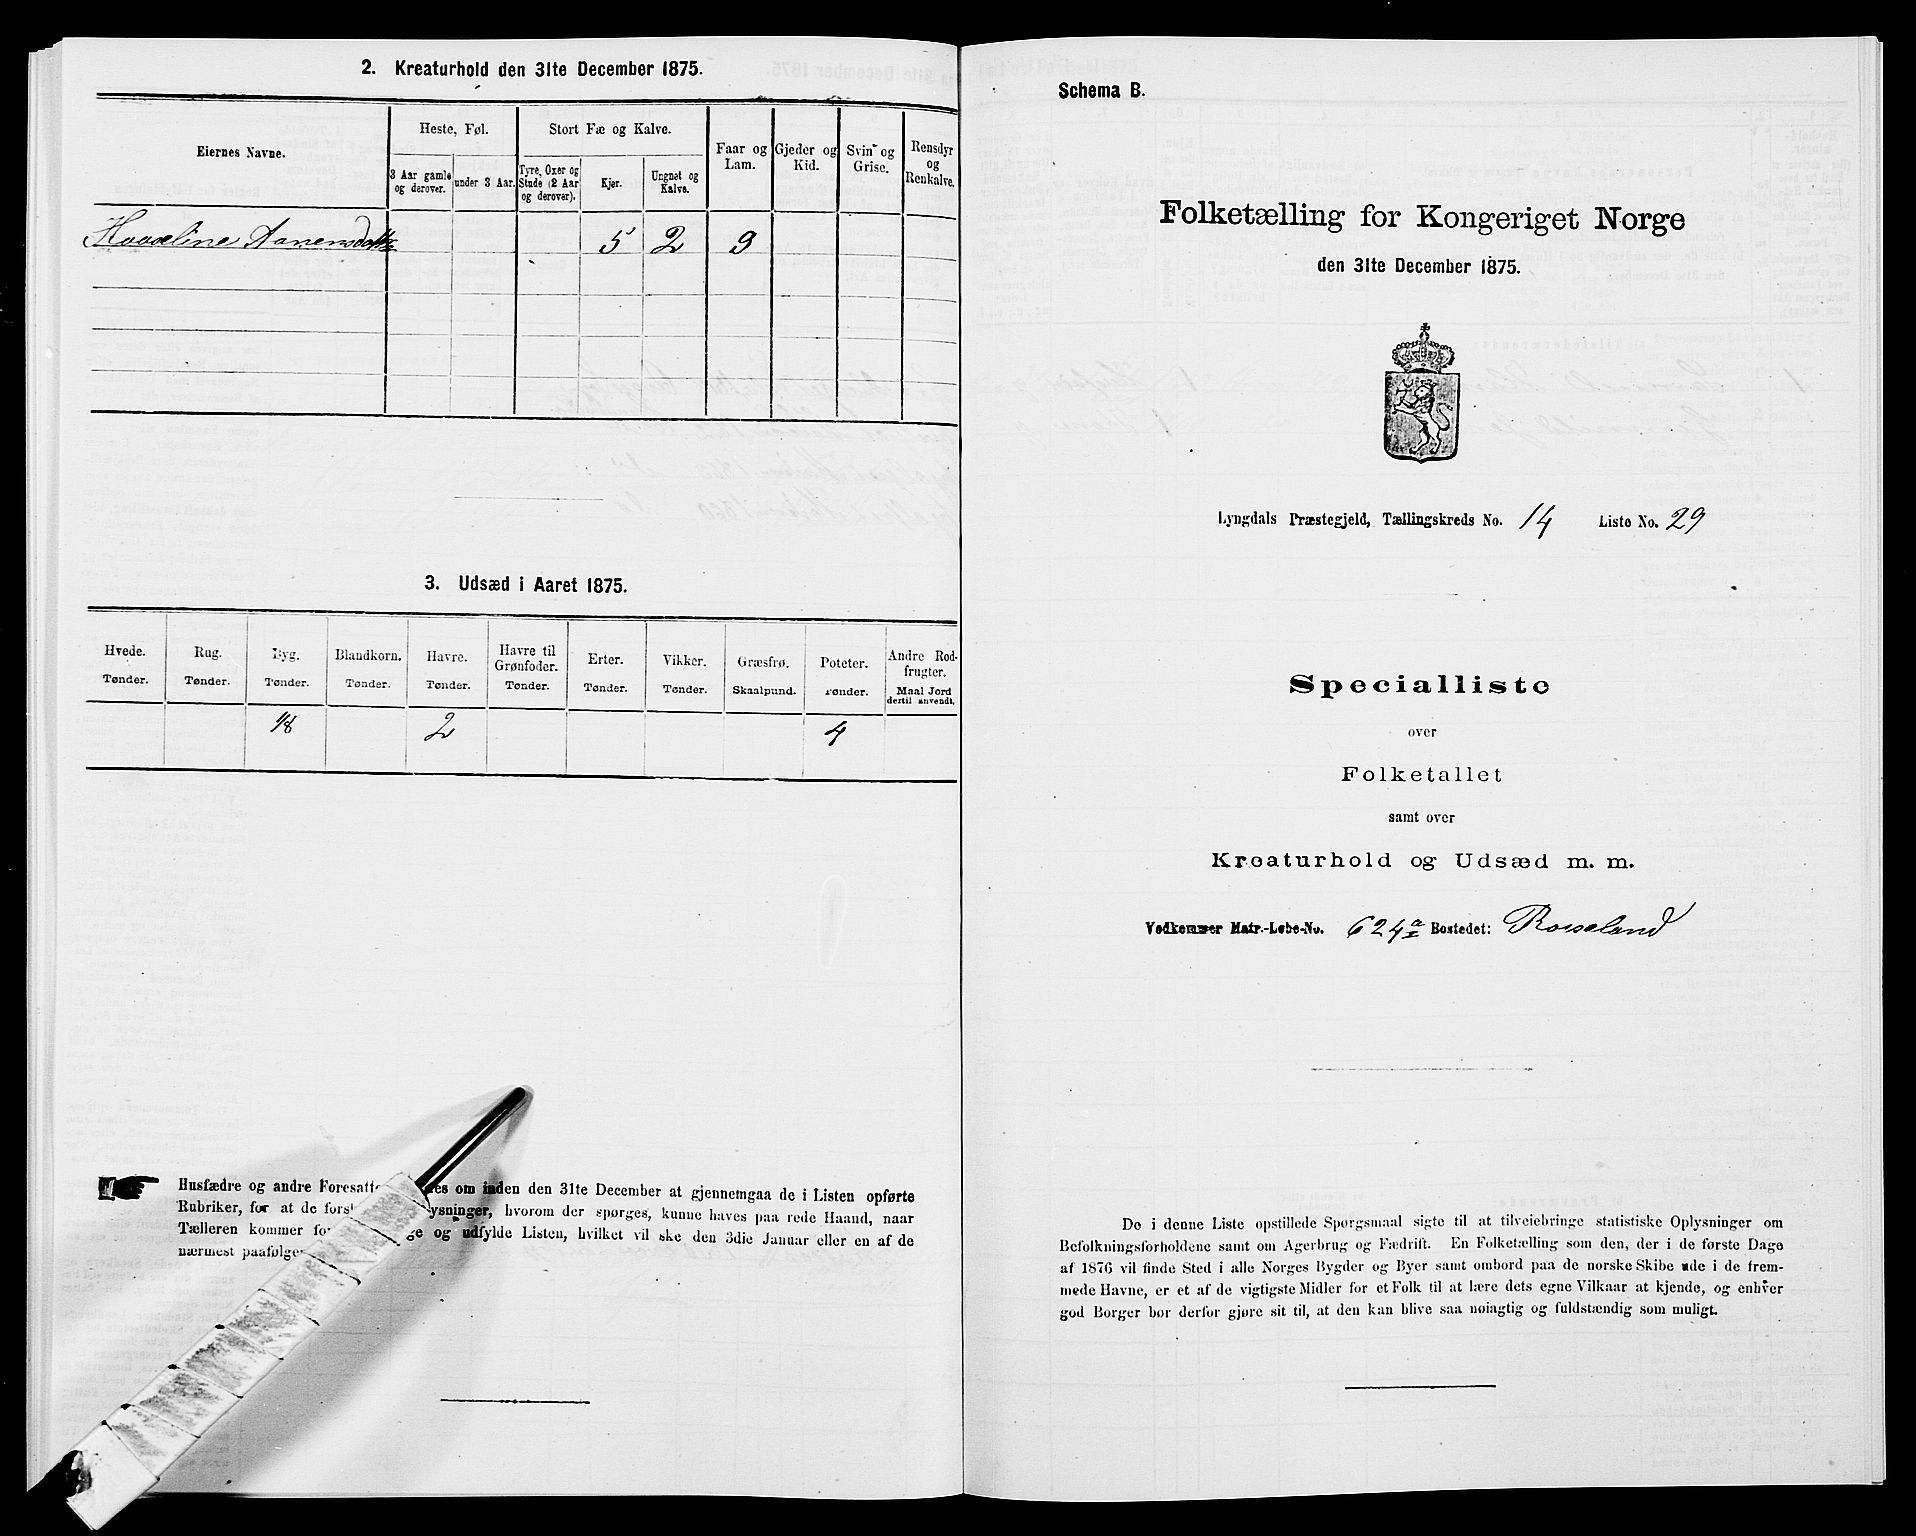 2. Kreaturhold den 31te December 1875.
Eiernes Navne.
Heste, Føl.
Stort Fæ og Kalve.
Faar og Lam.
Gjeder og Kid.
Svin og Grise.
Rensdyr og Renkalve.
3 Aar gamle og derover.
under 3 Aar.
Tyre, Oxer og Stude (2 Aar og derover).
Kjør.
Ungnøt og Kalve.
Aanensdatter 5 2 9
3. Udsæd i Aaret 1875.
Hvede. Tønder.
Rug. Tønder.
Byg. Tønder.
Blandkorn. Tønder.
Havre. Tønder.
Havre til Grønfoder. Tønder.
Erter. Tønder.
Vikker. Tønder.
Græsfrø. Skaalpund.
Poteter. Tønder.
Andre Rodfrugter. Maal Jord dertil anvendt.
1/8 2 4
Husfædre og andre Foresatte om inden den 31te December at gjennemgaa de i Listen opførte
Rubriker, for at de hvorom der spørges, kunne haves paa rede Haand, naar
Tælleren kommer og udfylde Listen, hvilket vil ske den 3die Januar eller en af de
nærmest
Schema B.
Folketælling for Kongeriget Norge
den 31te December 1875.
Lyngdals Præstegjeld, Tællingskreds No. 14 Liste No. 29
Specialliste
over
Folketallet
samt over
Kreaturhold og Udsæd m. m.
Vedkommer Matr.-Løbe-No. 624a Bostedet: Roiseland
De i denne Liste opstillede Spørgsmaal sigte til at tilveiebringe statistiske Oplysninger om
Befolkningsforholdene samt om Agerbrug og Fædrift. En Folketælling som den, der i de første Dage
af 1876 vil finde Sted i alle Norges Bygder og Byer samt ombord paa de norske Skibe ude i de frem-
mede Havne, er et af de vigtigste Midler for et Folk til at lære dets egne Vilkaar at kjende, og enhver
god Borger bør derfor gjøre sit til, at den kan blive saa nøiagtig og fuldstændig som muligt.